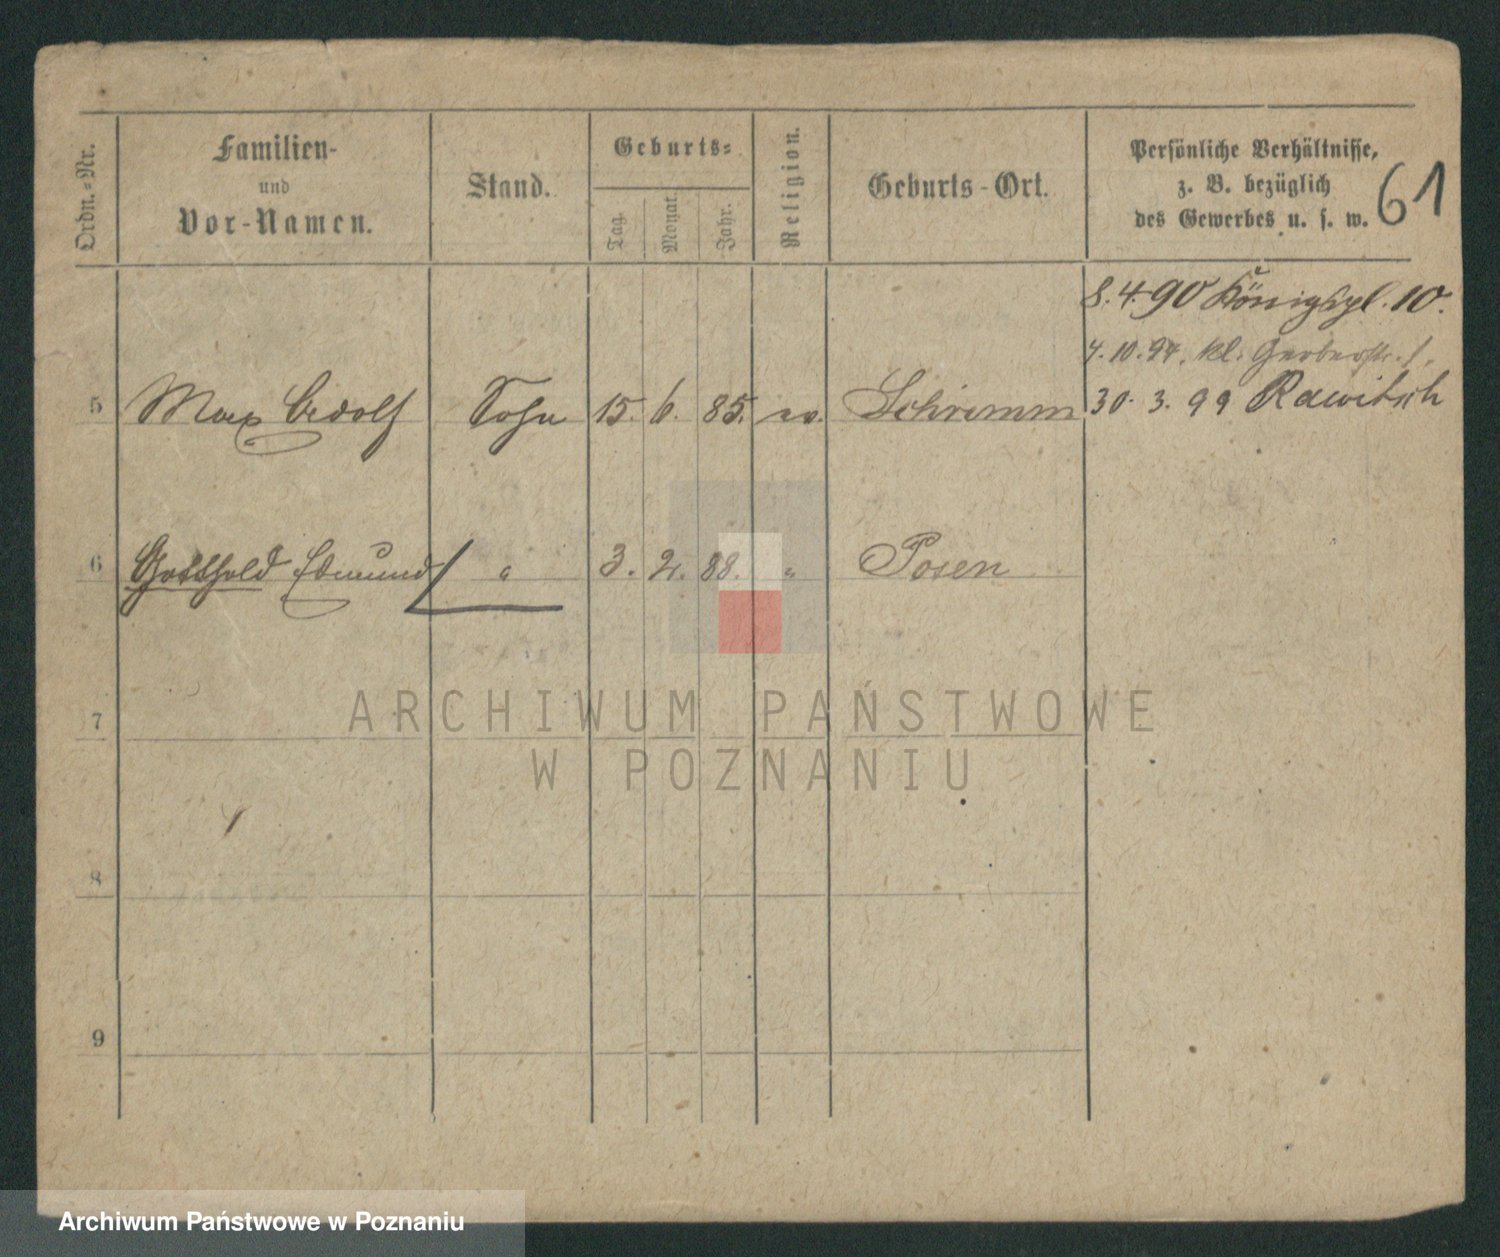 Ordn.-Nr.
Familien-
und
Vor-Namen.
Stand.
Geburts-
Tag.
Monat.
Jahr.
Religion.
Geburts-Ort.
Persönliche Verhältnisse,
z. B. bezüglich
des Gewerbes u. s. w.
61
8.4.90 Königspl. 10.
4.10.94. kl. Gerberstr. 1.
5 Max Adolf Sohn 15. 6. 85. ev. Schrimm 30. 3. 99 Rawitsch
6 Gotthold Edmund " 3. 2. 88. " Posen
7
8
9
ARCHIWUM PAŃSTWOWE
W POZNANIU
Archiwum Państwowe w Poznaniu